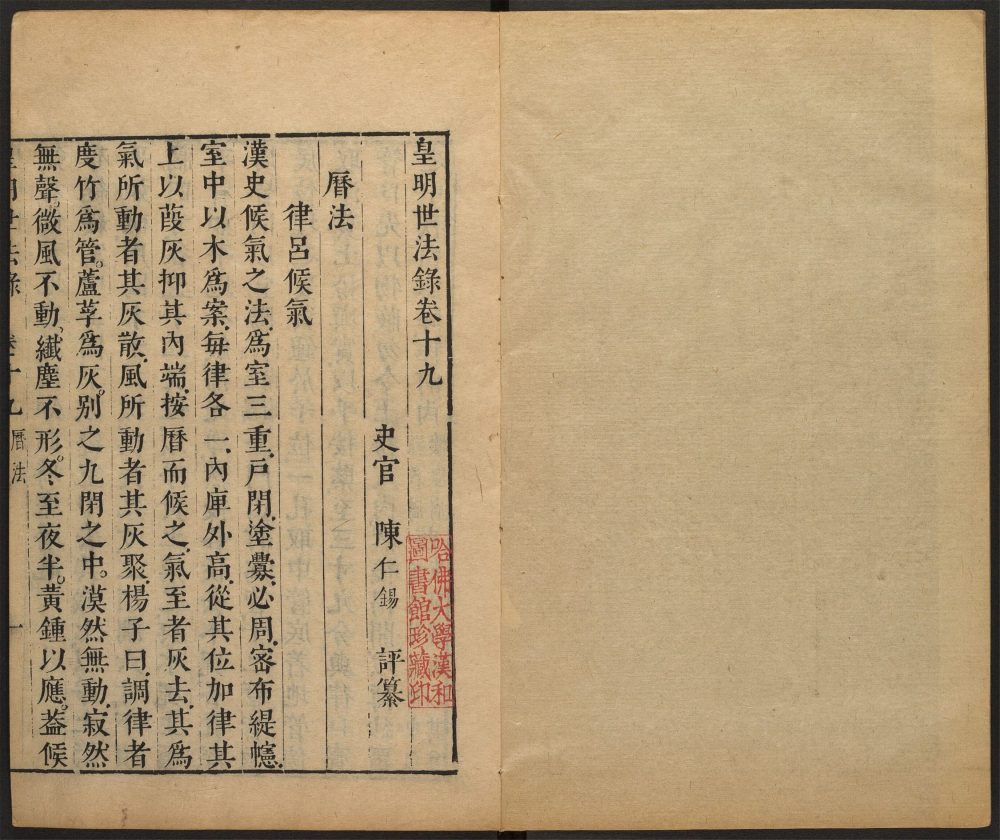 皇明世法錄卷十九
史官 陳仁錫 評纂
曆法
律呂候氣
漢史候氣之法爲室三重戶閉塗釁必周密布緹幔
室中以木爲案每律各一內庳外高從其位加律其
上以葭灰抑其內端按曆而候之氣至者灰去其爲
氣所動者其灰散風所動者其灰聚楊子曰調律者
度竹爲管蘆莩爲灰別之九閉之中漠然無動寂然
無聲微風不動纖塵不形冬至夜半黃鍾以應葢候
皇明世法錄 卷十九 曆法 一
哈佛大學漢和
圖書館珍藏印